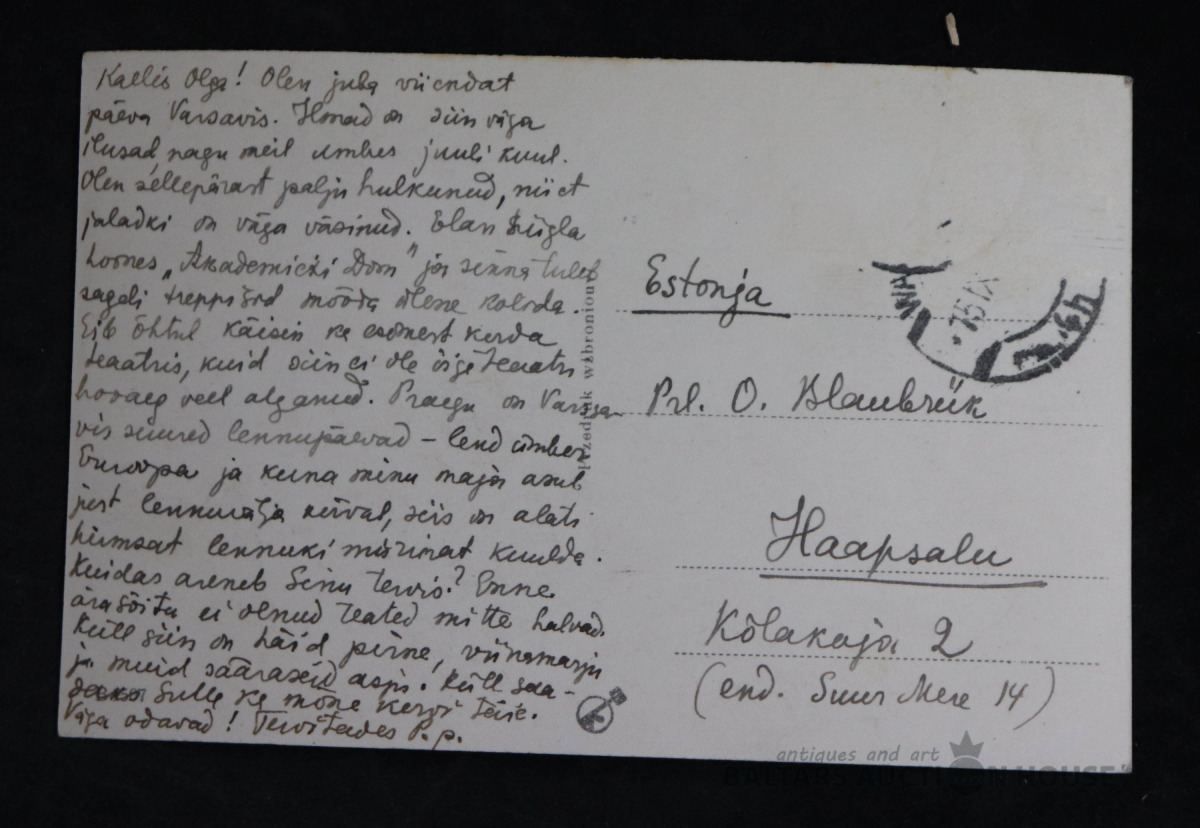 Kallis Olga! Olen juba viiendat
päeva Varsavis. Ilmad on siin väga
ilusad, nagu meil umbes juuli kuul.
Olen sellepärast palju hulkunud, niiet
jaladki on väga väsinud. Elan Riigla
hoones „Akademicki Dom" ja sinna tuleb
sageli treppisid mööda ülesse kolida.
Eile õhtul käisin ka esimest korda
teatris, kuid siin ei ole õige teatri
hooaeg veel alganud. Praegu on Varssa-
vis suured lennupäevad – lend ümber
Euroopa ja kuna minu maja asub
just lennuvälja kõrval, siis on alati
hirmsat lennuki mürinat kuulda.
Kuidas areneb Sinu tervis? Enne
ärasõitu ei olnud teated mitte halvad.
Küll siin on häid pirne, viinamarju
ja muid sääraseid asju. Küll saa-
daks Sulle ka mõne korvi täie.
Väga odavad! Tervitades P.p.
przedruk wzbroniony
Estonja
Prl. O. Blaubrük
Haapsalu
Kõlakoja 2
(end. Suur Mere 14)
15 IX
antiques and art
BALTARS AUCTION HOUSE